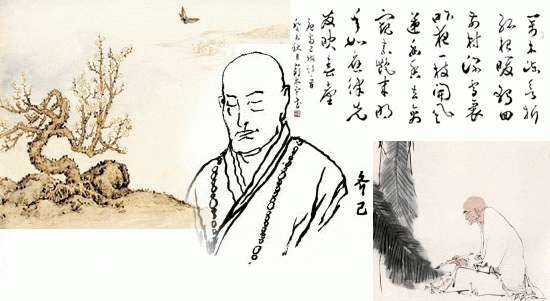 萬木凍欲折
孤根暖獨回
前村深雪裏
昨夜一枝開風
遞幽香去禽
窺素艷来明
年如應律先
發映春臺
齐己